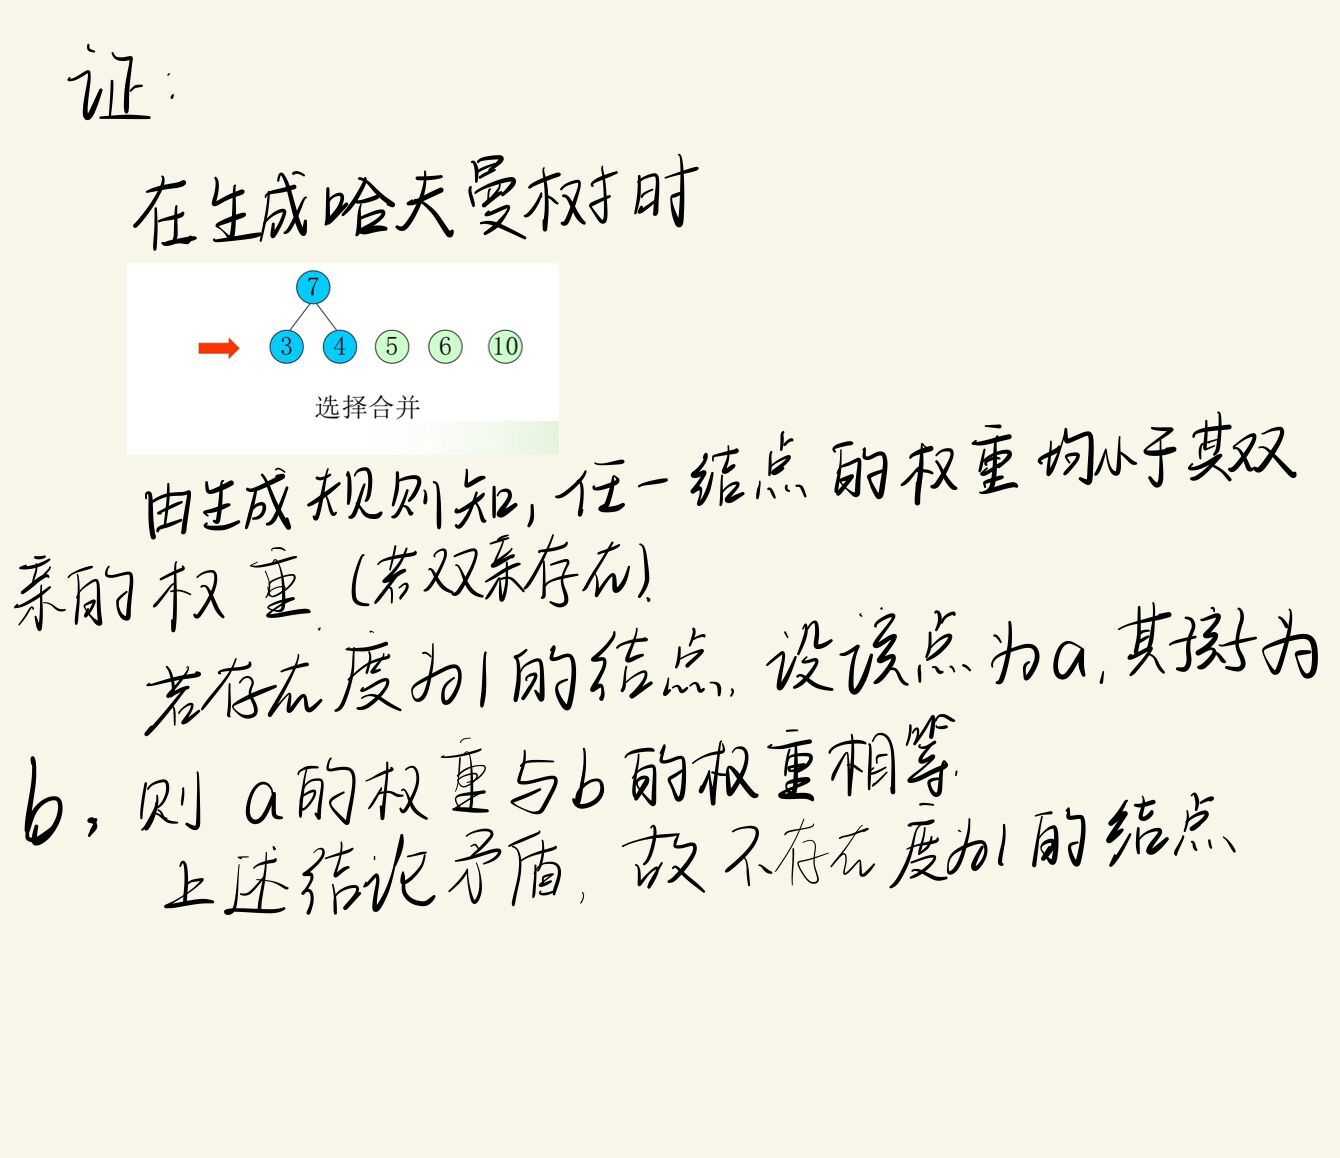 证:
在生成哈夫曼树时
7
3 4 5 6 10
选择合并
由生成规则知,任一结点的权重均小于其双
亲的权重(若双亲存在).
若存在度为1的结点,设该点为a,其孩子为
b,则a的权重与b的权重相等.
上述结论矛盾,故不存在度为1的结点